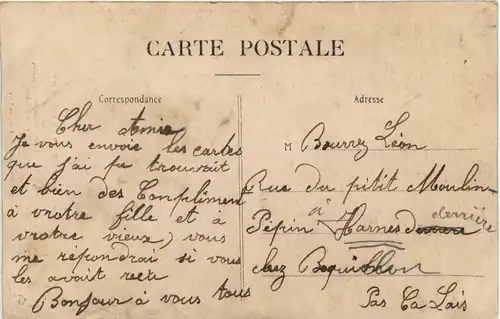 CARTE POSTALE
Correspondance
Cher Amis
Je vous envoie les cartes
que j'ai pu trouvait
et bien des Compliment
à vrotre fille et à
vrotre vieux) vous
me répondrai si vous
les avait recu
Bonjour à vous tous
Adresse
M Bourrez Léon
Rue du pitit Moulin
Pépin à Harnes derrière
chez
Pas Ca Lais